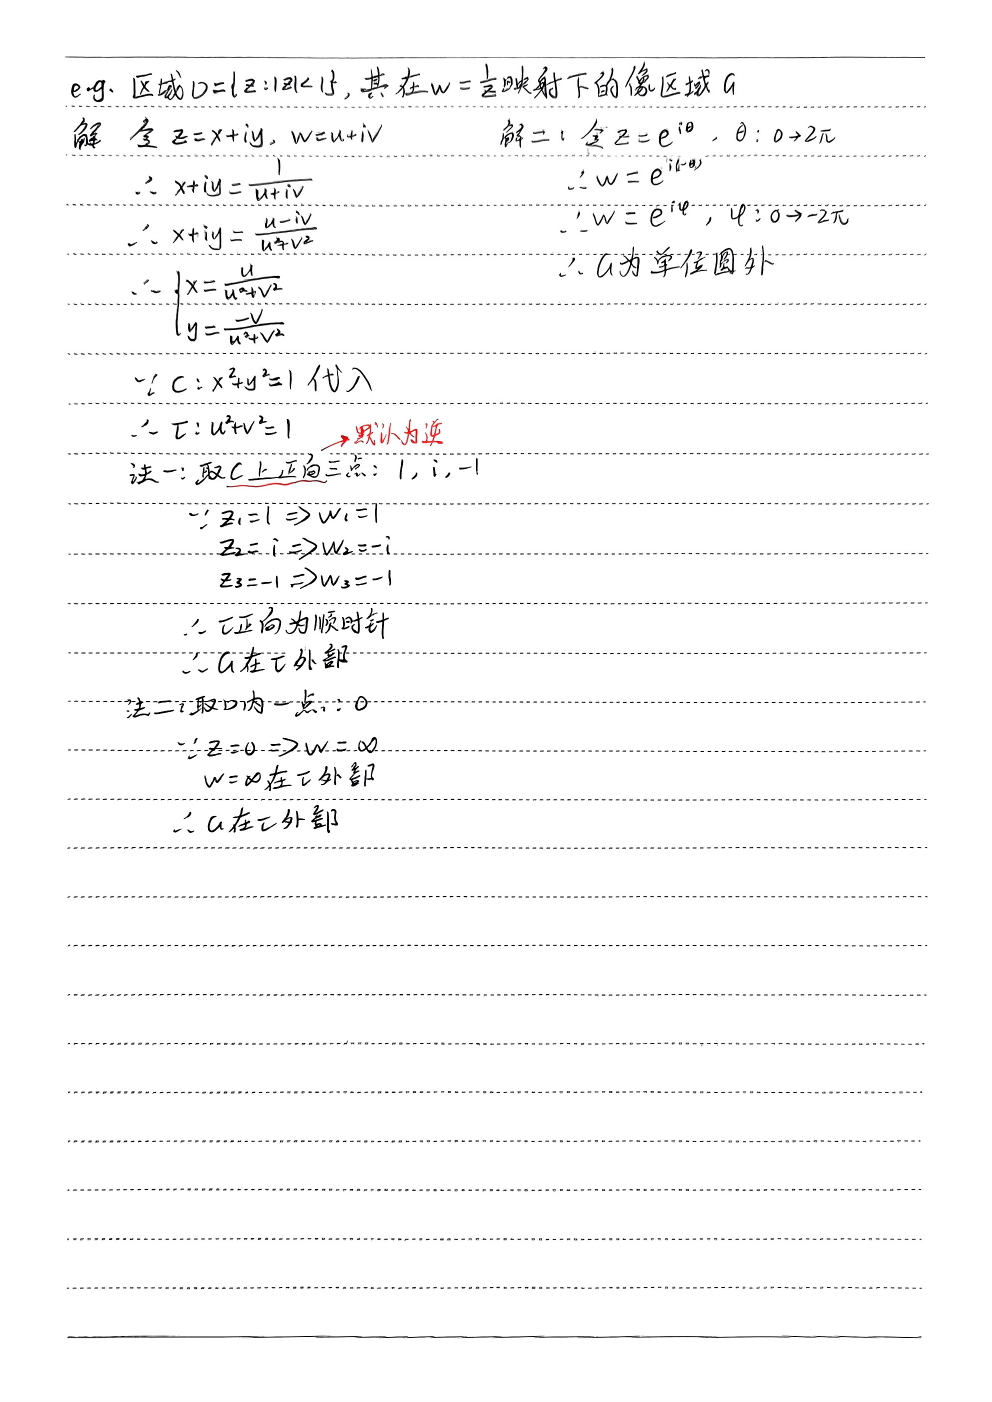 e.g. 区域D={z:|z|<1},其在w=1/z映射下的像区域G
解 令z=x+iy, w=u+iv
∴ x+iy=1/(u+iv)
∴ x+iy=(u-iv)/(u²+v²)
∴ { x=u/(u²+v²)
y=-v/(u²+v²)
∵ C:x²+y²=1代入
∴ τ:u²+v²=1
→默认为逆
法一:取C上正向三点:1, i, -1
∵ z₁=1 => w₁=1
z₂=i => w₂=-i
z₃=-1 => w₃=-1
∴ τ正向为顺时针
∴ G在τ外部
法二:取D内一点:0
∵ z=0 => w=∞
w=∞在τ外部
∴ G在τ外部
解二:令z=e^{iθ}, θ:0→2π
∴ w=e^{i(-θ)}
∴ w=e^{iφ}, φ:0→-2π
∴ G为单位圆外